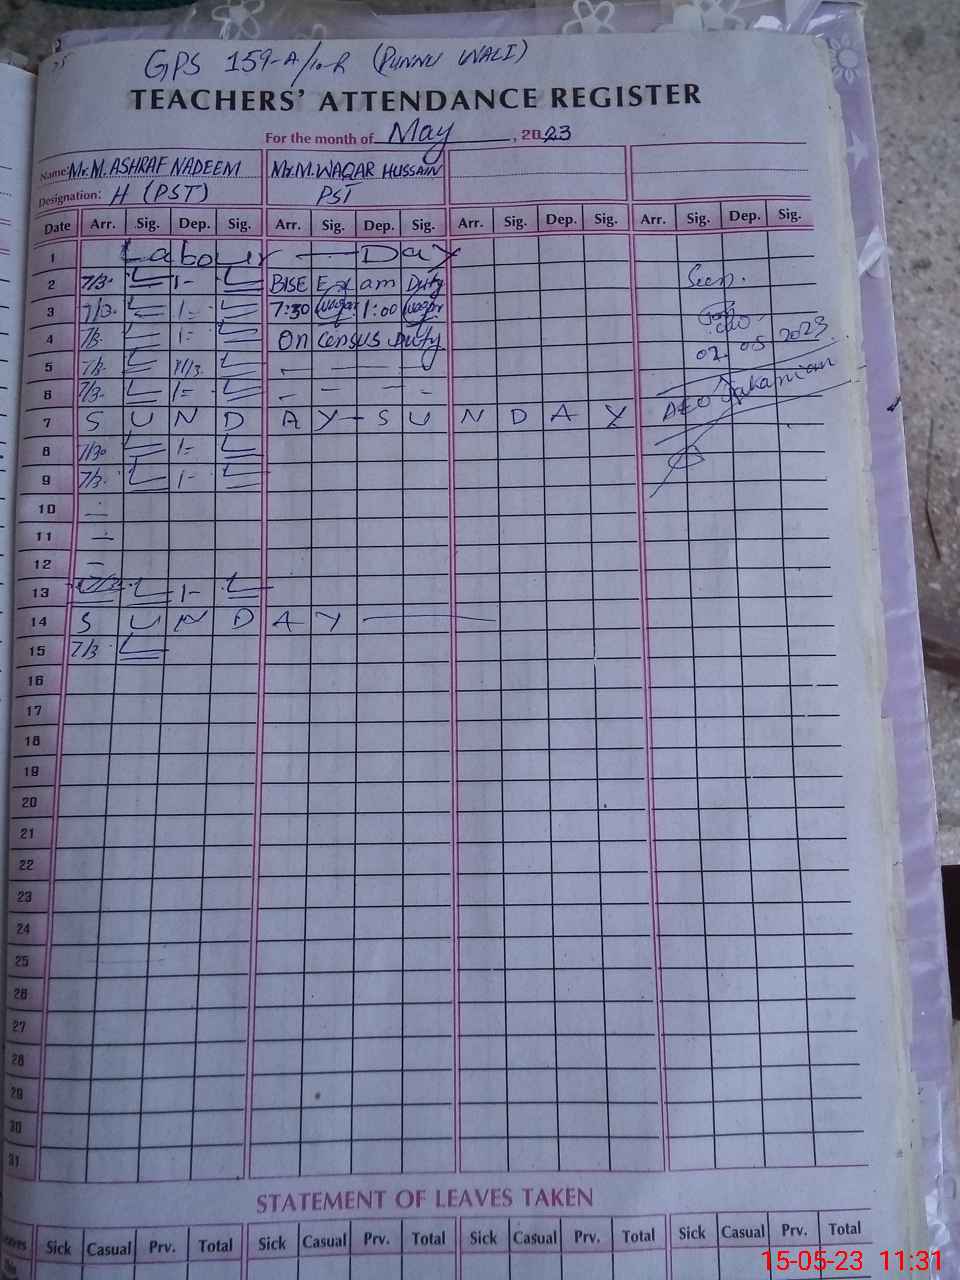 GPS 159-A/10-R (PUNNU WALI)
TEACHERS' ATTENDANCE REGISTER
For the month of May, 2023
Name: Mr. M. ASHRAF NADEEM Mr. M. WAQAR HUSSAIN
Designation: H (PST) PST
Date Arr. Sig. Dep. Sig. Arr. Sig. Dep. Sig. Arr. Sig. Dep. Sig. Arr. Sig. Dep. Sig.
1 Labour — Day
2 7/3. 1- BISE Exam Duty Seen.
3 7/3. 1= 7:30 Waqar 1:00 Waqar
4 7/3 1= On Census Duty 02.05 2023
5 7/3. — — —
6 7/3. 1= - - - - AEO
7 S U N D A Y - S U N D A Y
8 7/30 1=
9 7/3. 1-
10 —
11 —
12 —
13 1-
14 S U N D A Y —
15 7/3
16
17
18
19
20
21
22
23
24
25
26
27
28
29
30
31
STATEMENT OF LEAVES TAKEN
Sick Casual Prv. Total Sick Casual Prv. Total Sick Casual Prv. Total Sick Casual Prv. Total
15-05-23 11:31